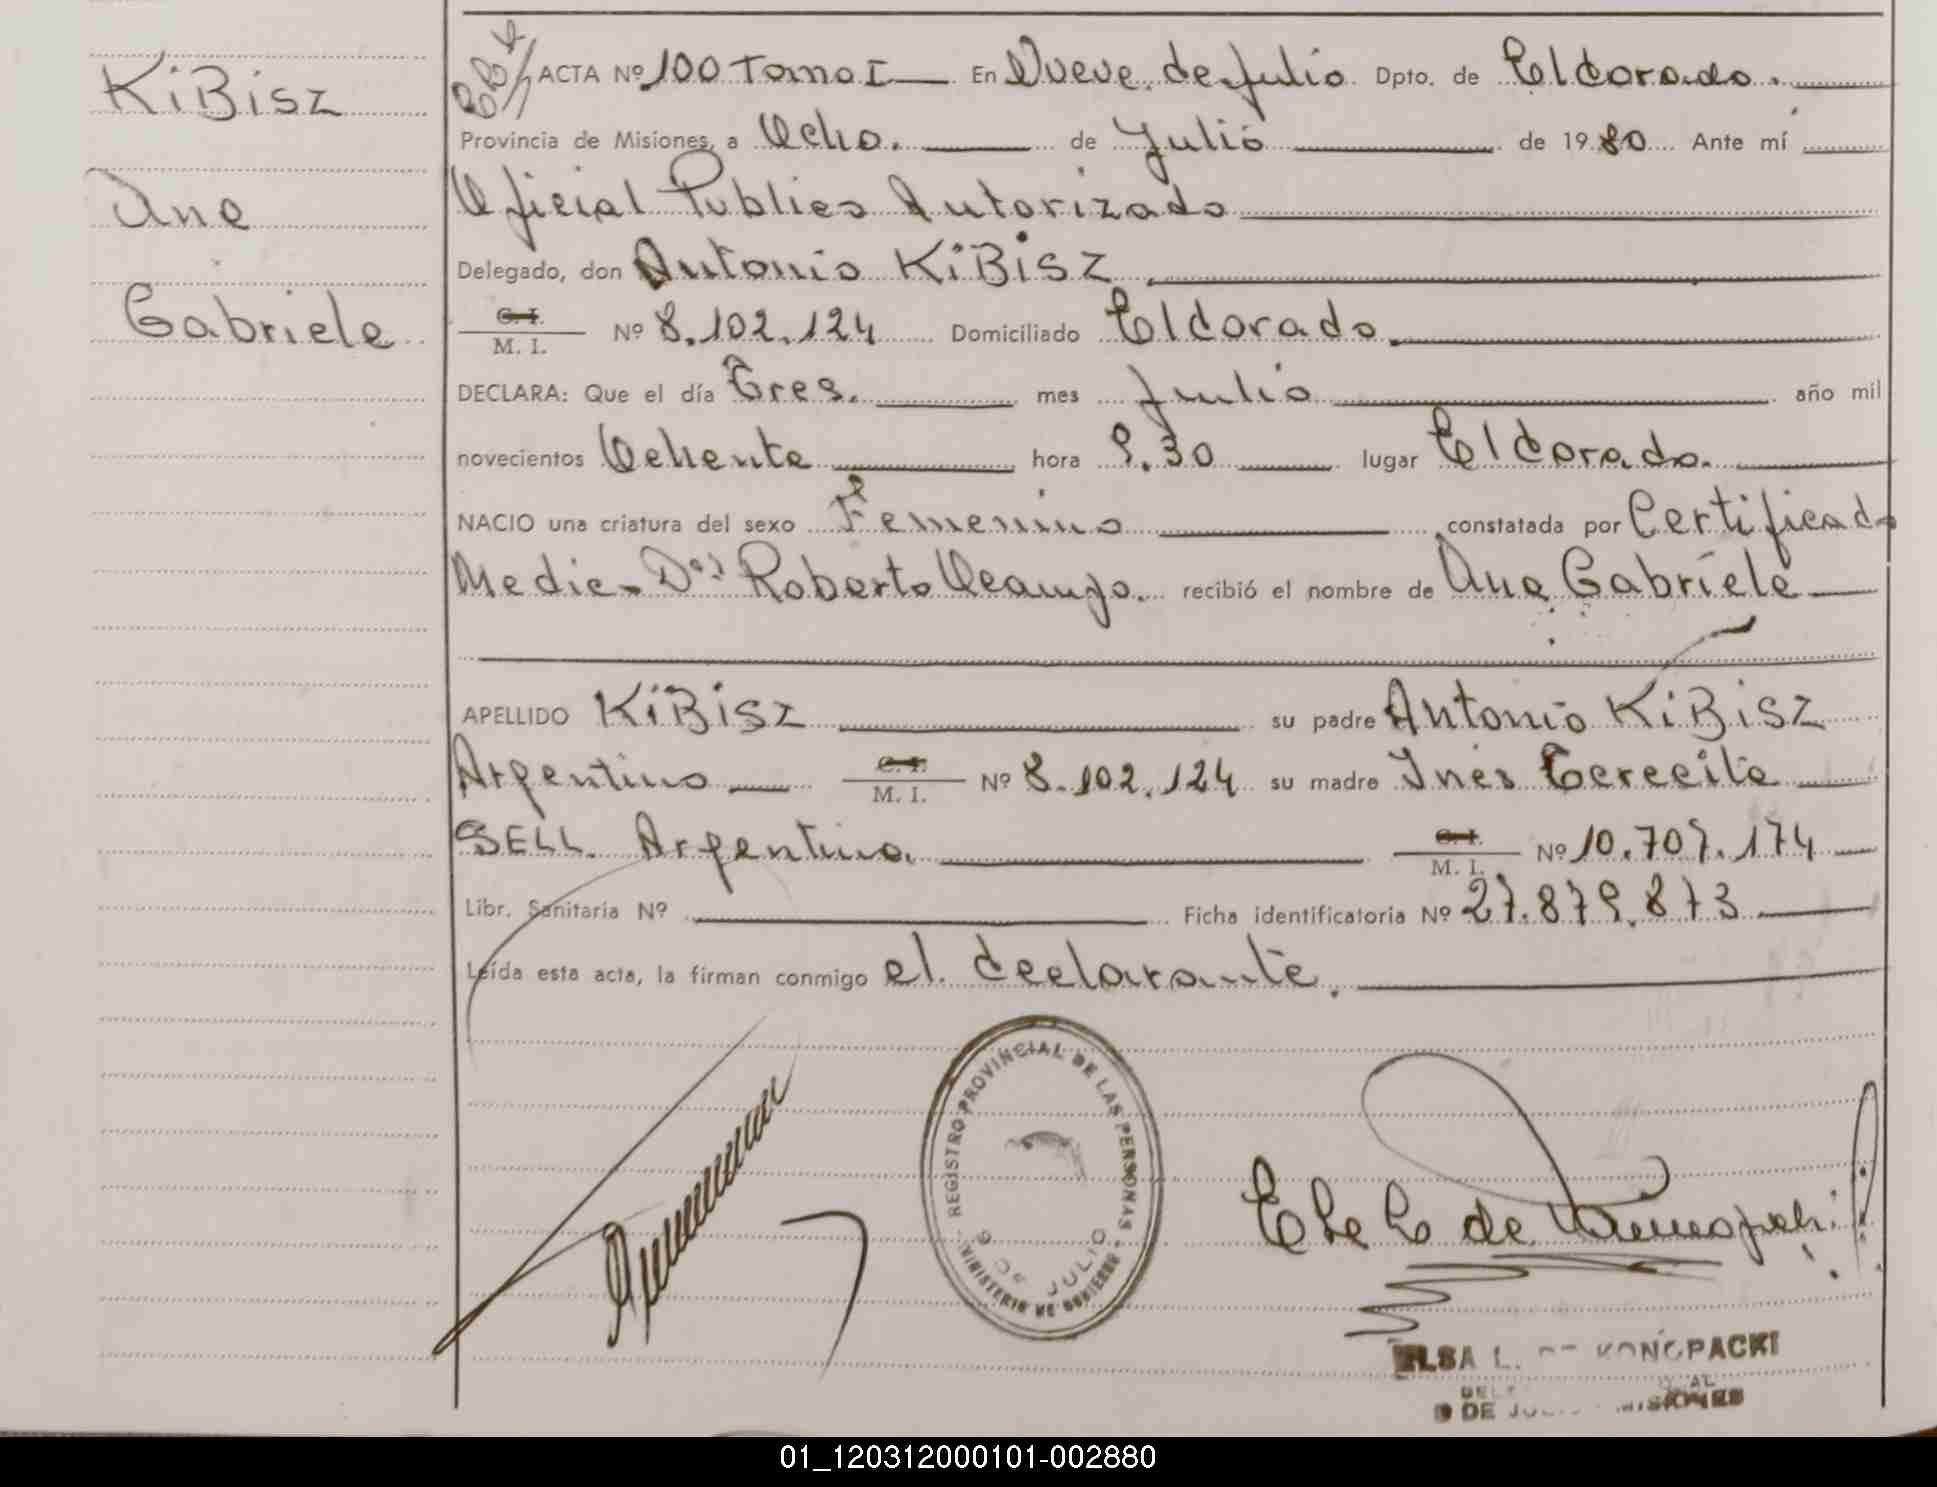 KiBisz
Ana
Gabriela
ACTA Nº 100 Tomo I En Nueve de Julio Dpto. de Eldorado.
Provincia de Misiones, a Ocho. de Julio de 1980 Ante mí
Oficial Publico Autorizado
Delegado, don Antonio KiBisz
C. I.
M. I. Nº 8.102.124 Domiciliado Eldorado.
DECLARA: Que el día Tres. mes Julio año mil
novecientos Ochenta hora 9.30 lugar Eldorado.
NACIO una criatura del sexo Femenino constatada por Certificado
Medico Dor Roberto Ocampo. recibió el nombre de Ana Gabriela
APELLIDO KiBisz su padre Antonio KiBisz
Argentino C. I.
M. I. Nº 8.102.124 su madre Ines Terecita
SELL. Argentina. C. I.
M. I. Nº 10.707.174
Libr. Sanitaria Nº Ficha identificatoria Nº 27.879.873
Leída esta acta, la firman conmigo el declarante.
REGISTRO PROVINCIAL DE LAS PERSONAS
MINISTERIO DE GOBIERNO
9 DE JULIO
ELSA L. DE KONOPACKI
9 DE JULIO MISIONES
01_120312000101-002880